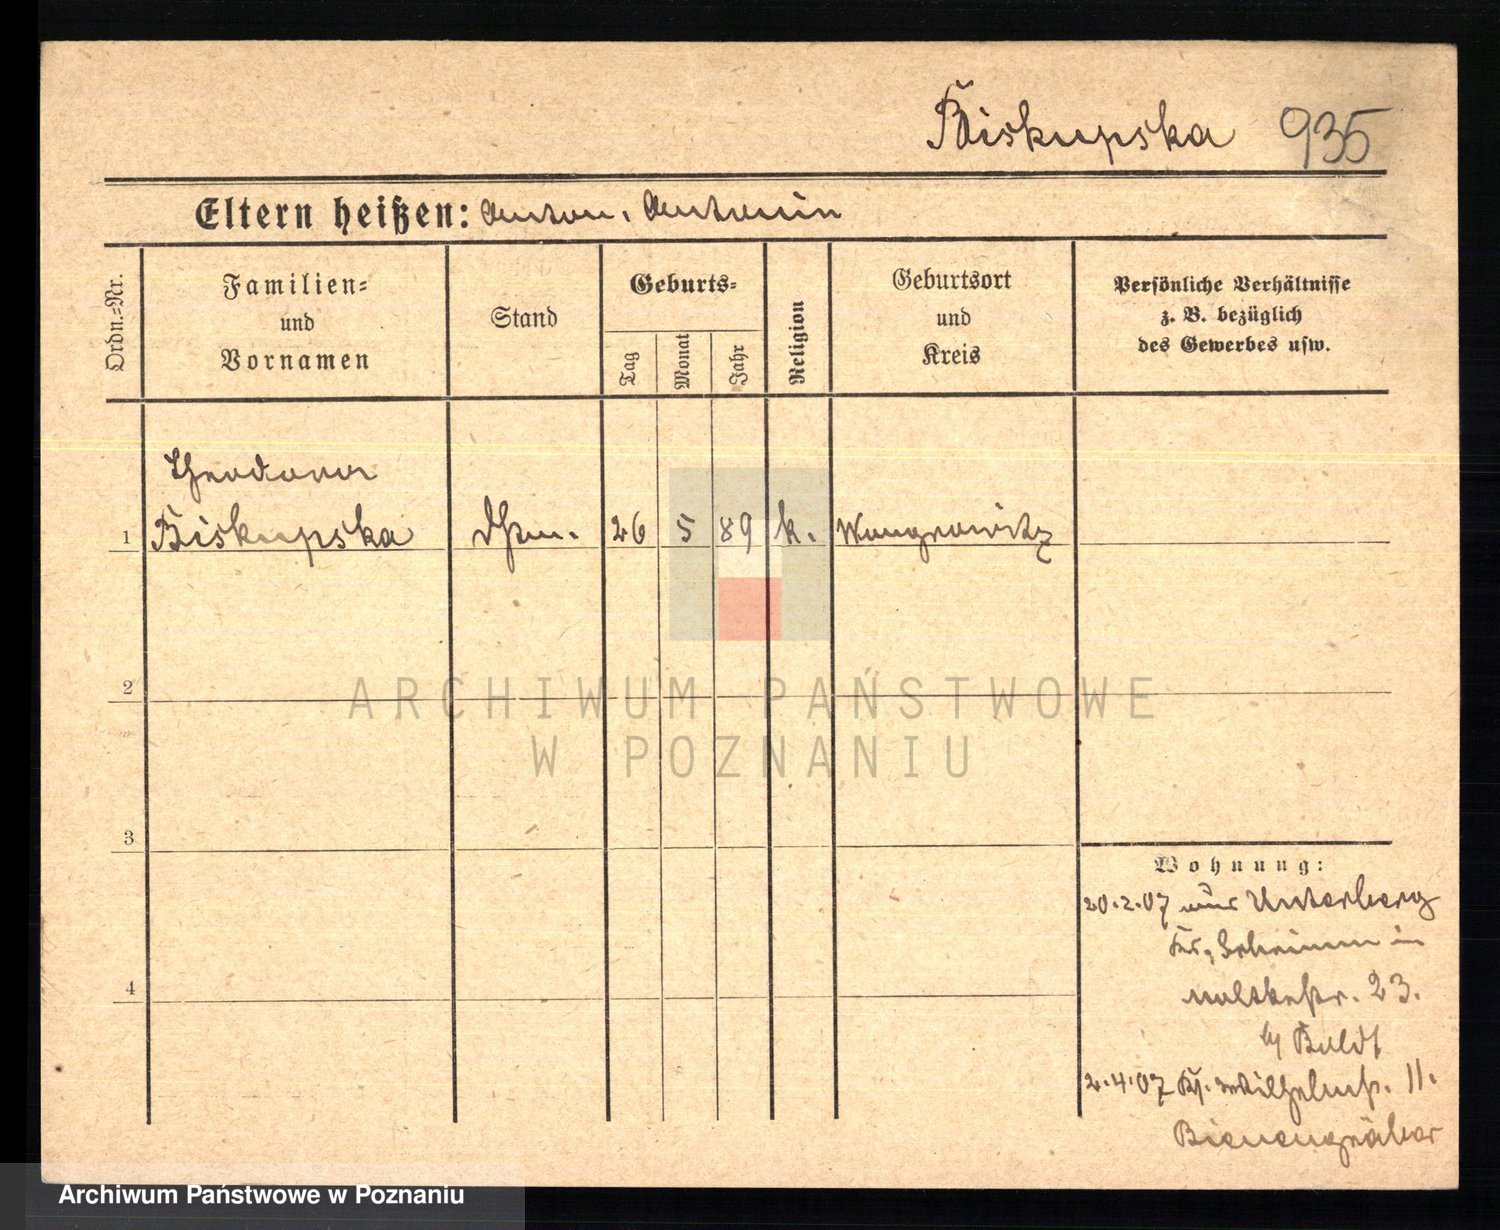 Biskupska 935
Eltern heißen: Anton, Antonin
Ordn.=Nr.
Familien=
und
Vornamen
Stand
Geburts=
Tag
Monat
Jahr
Religion
Geburtsort
und
Kreis
Persönliche Verhältnisse
z. B. bezüglich
des Gewerbes usw.
Theodora
1 Biskupska 26 5 89 k. Wongrowitz
2
3
4
ARCHIWUM PAŃSTWOWE
W POZNANIU
Wohnung:
20.2.07 aus Unterberg
Kr. Schrimm in
Moltkestr. 23.
b/ Buldt
2.4.07 Kg. Wilhelmst. 11.
Bienengräber
Archiwum Państwowe w Poznaniu